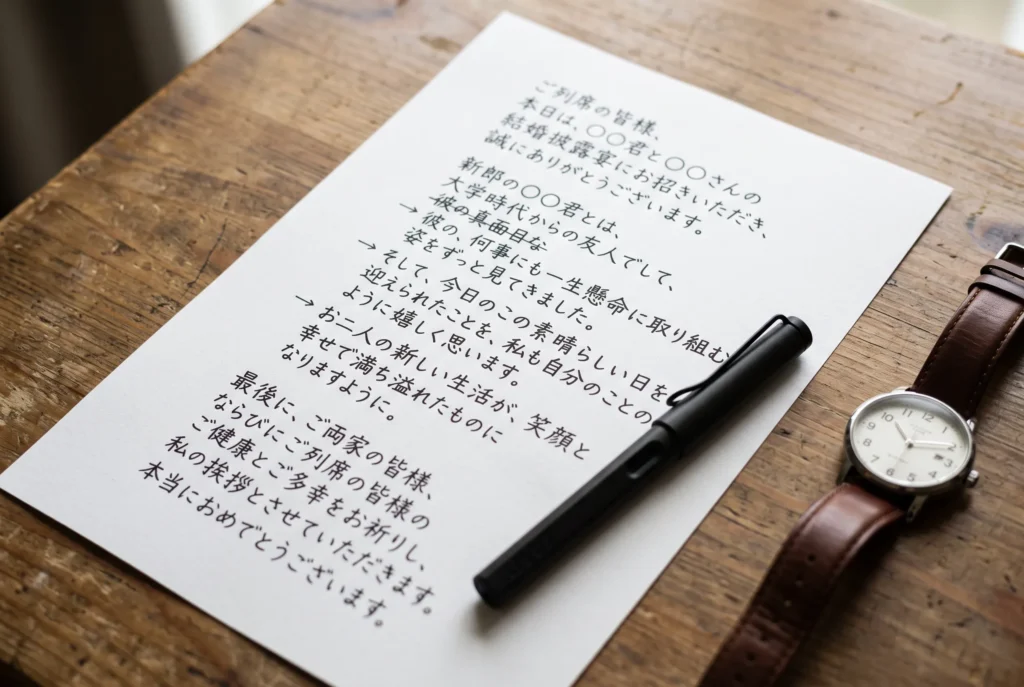 ご列席の皆様、
本日は、〇〇君と〇〇さんの
結婚披露宴にお招きいただき、
誠にありがとうございます。
新郎の〇〇君とは、
大学時代からの友人でして、
彼の真面目な
→ 彼の、何事にも一生懸命に取り組む
姿をずっと見てきました。
→ そして、今日のこの素晴らしい日を
迎えられたことを、私も自分のことの
ように嬉しく思います。
→ お二人の新しい生活が、笑顔と
幸せで満ち溢れたものに
なりますように。
最後に、ご両家の皆様、
ならびにご列席の皆様の
ご健康とご多幸をお祈りし、
私の挨拶とさせていただきます。
本当におめでとうございます。
12
1
2
3
4
5
6
7
8
9
10
11